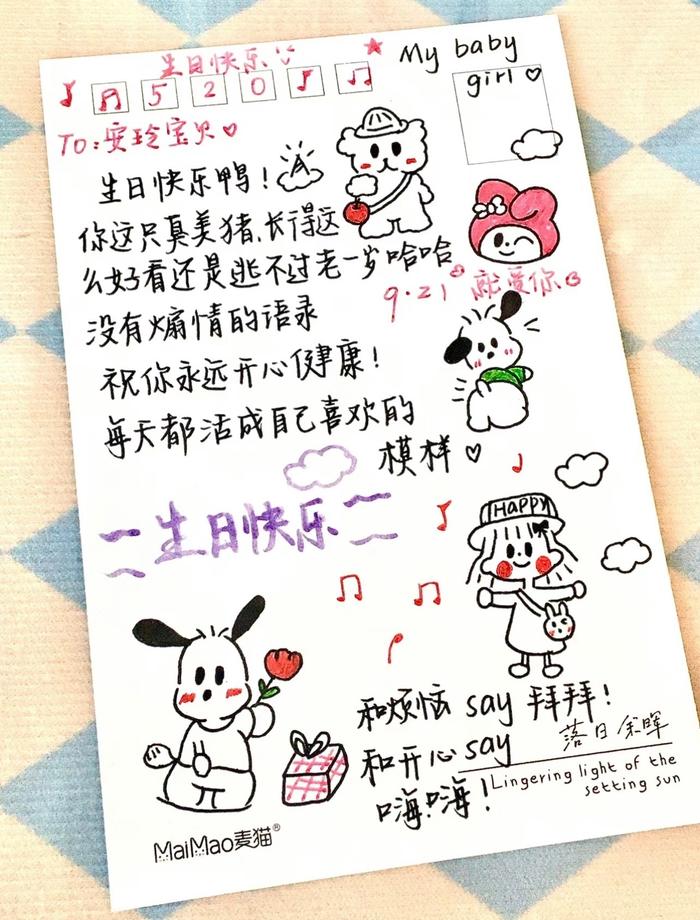 生日快乐
My baby
girl ♡
5 2 0
TO:安玲宝贝♡
生日快乐鸭!
你这只真美猪,长得这
么好看还是逃不过老一岁哈哈
9·21 就爱你
没有煽情的语录
祝你永远开心健康!
每天都活成自己喜欢的
模样♡
~生日快乐~
HAPPY
和烦恼 say 拜拜!
和开心 say
嗨嗨!
落日余晖
Lingering light of the
setting sun
MaiMao麦猫®